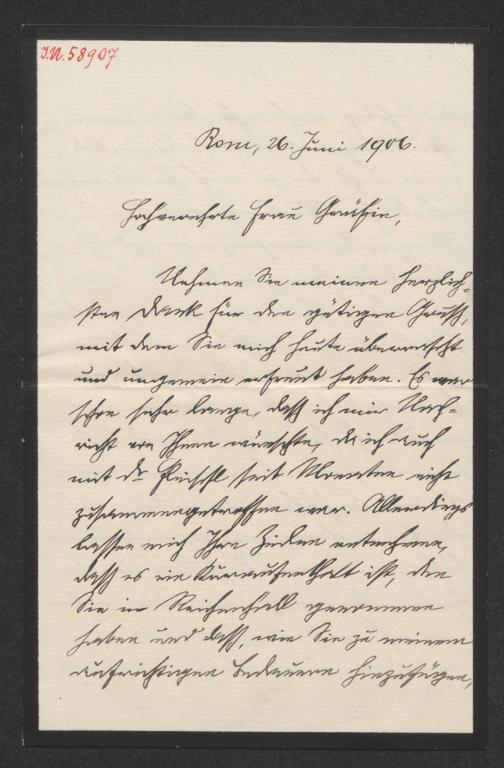 I.N. 58907
Rom, 26. Juni 1906.
Hochverehrte Frau Gräfin,
Nehmen Sie meinen herzlich-
sten Dank für den gütigen Gruß,
mit dem Sie mich heute überrascht
und ungemein erfreut haben. Es war
schon sehr lange, daß ich mir Nach-
richt von Ihnen wünschte, da ich auch
mit Dr Fleischl seit Monaten nicht
zusammengetroffen war. Allerdings
lassen mich Ihre Zeilen entnehmen,
daß es ein Kuraufenthalt ist, den
Sie in Reichenhall genommen
haben und daß, wie Sie zu meinem
aufrichtigen Bedauern hinzufügen,